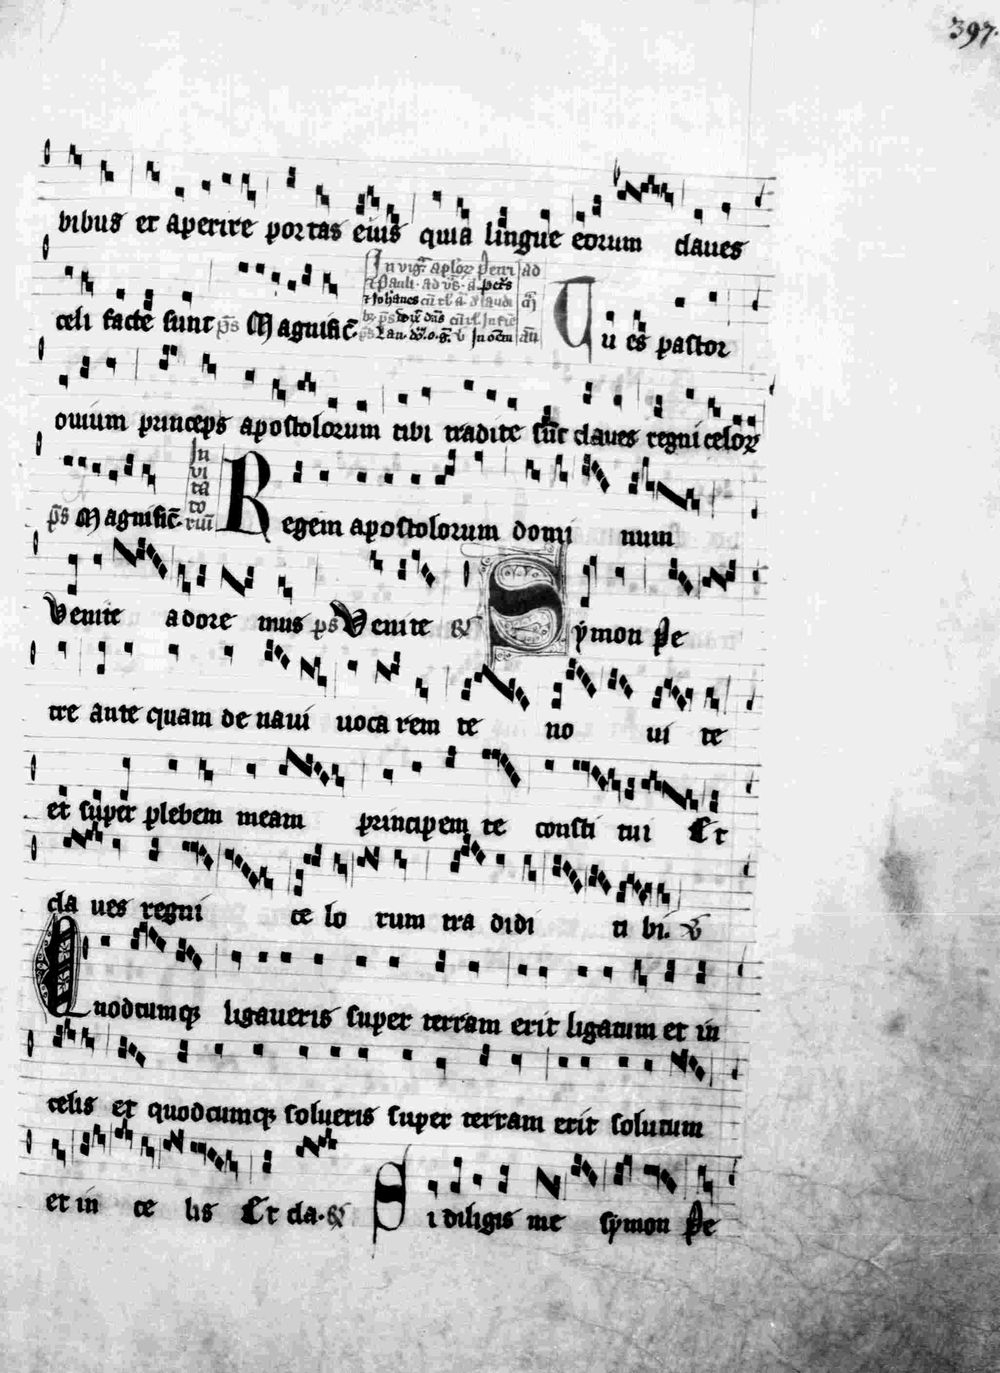 397.
bibus et aperire portas eius quia lingue eorum claues
celi facte sunt p̄s Magnific̄. Tu es pastor
ouium princeps apostolorum tibi tradite sūt claues regni celoꝝ
p̄s Magnific̄. In vi ta to riū Regem apostolorum domi num
Venite adore mus p̄s Venite Symon Pe
tre ante quam de naui uoca rem te no ui te
et super plebem meam principem te consti tui Et
cla ues regni ce lo rum tra didi ti bi. V
Quodcumqꝫ ligaueris super terram erit ligatum et in
celis et quodcumqꝫ solueris super terram erit solutum
et in ce lis Et cla. Si diligis me symon Pe